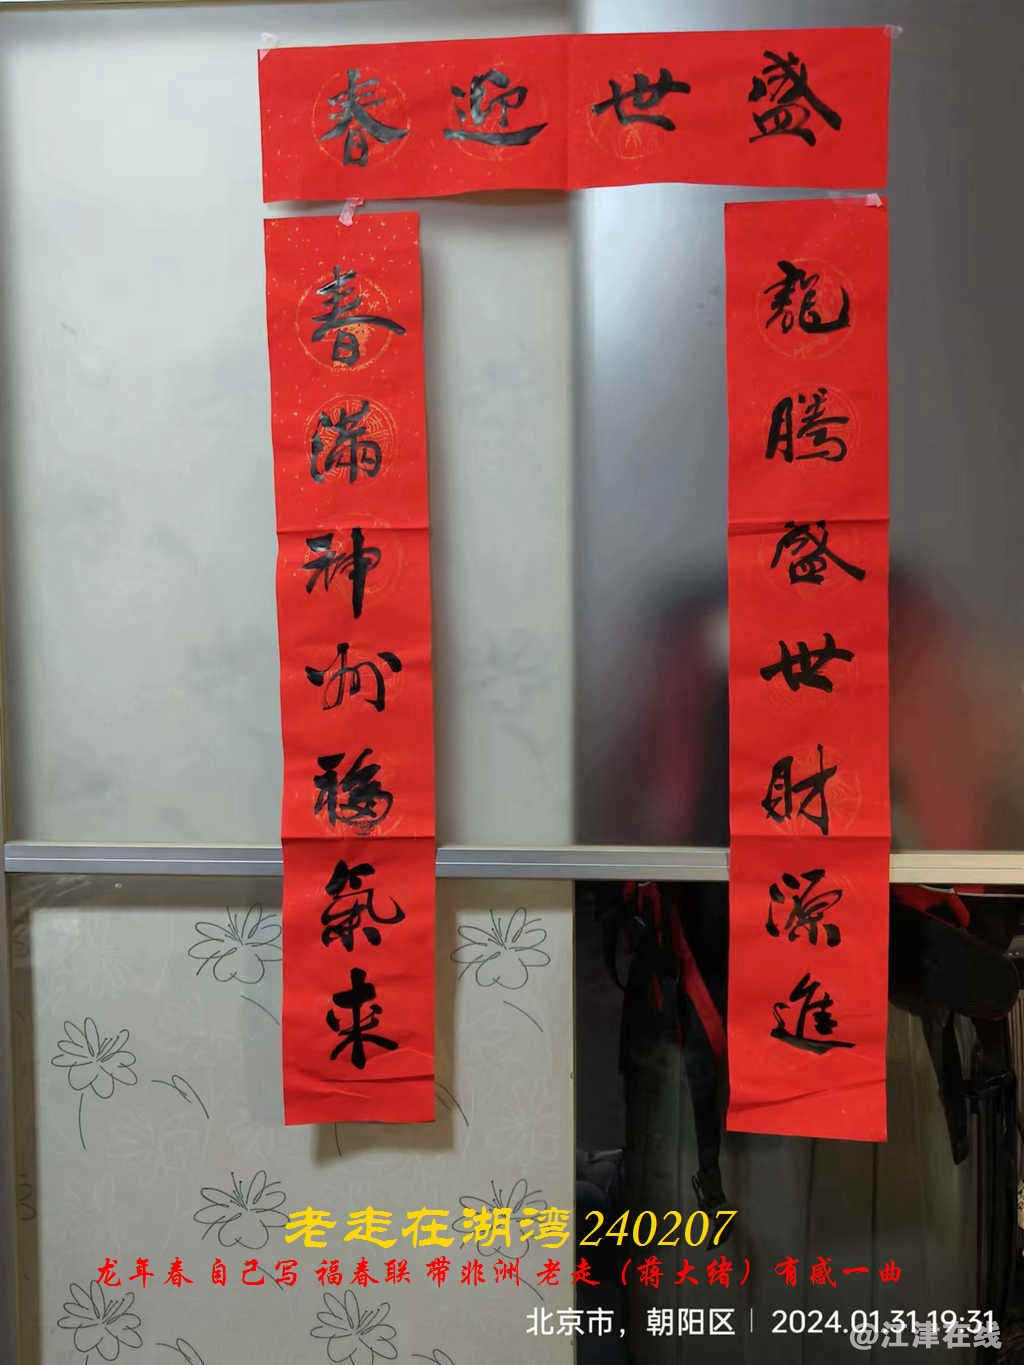 盛世迎春
龍騰盛世財源進
春滿神州福氣來
老走在湖湾240207
龙年春 自己写 福春联 带非洲 老走（蒋大绪）有感一曲
北京市，朝阳区 | 2024.01.31 19:31
@江津在线